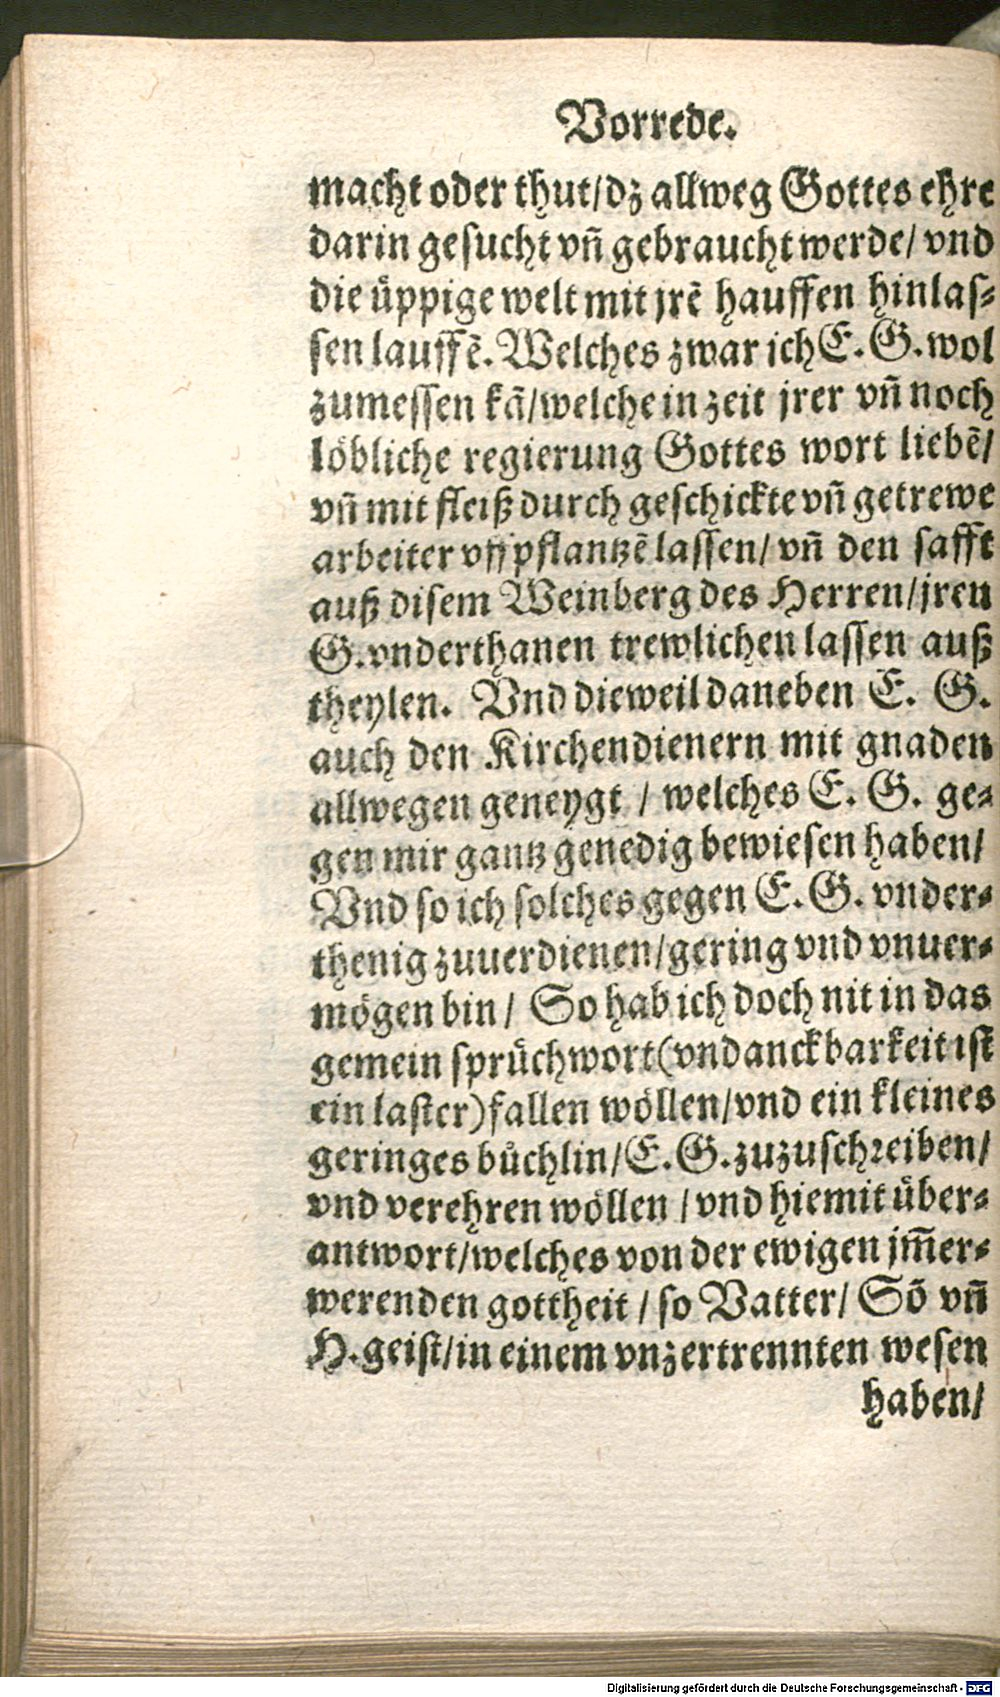 Vorrede.
macht oder thut/dz allweg Gottes ehre
darin gesucht vn̄ gebraucht werde/ vnd
die üppige welt mit jrē hauffen hinlas⸗
sen lauffē. Welches zwar ich E. G. wol
zumessen kā/welche in zeit jrer vn̄ noch
löbliche regierung Gottes wort liebē/
vn̄ mit fleiß durch geschickte vn̄ getrewe
arbeiter vffpflantzē lassen/ vn̄ den safft
auß disem Weinberg des Herren/jren
G. vnderthanen trewlichen lassen auß
theylen. Vnd dieweil daneben E. G.
auch den Kirchendienern mit gnaden
allwegen geneygt / welches E. G. ge⸗
gen mir gantz genedig bewiesen haben/
Vnd so ich solches gegen E. G. vnder⸗
thenig zuuerdienen/gering vnd vnuer⸗
mögen bin/ So hab ich doch nit in das
gemein sprüchwort(vndanckbarkeit ist
ein laster)fallen wöllen/vnd ein kleines
geringes bůchlin/E. G. zuzuschreiben/
vnd verehren wöllen / vnd hiemit über⸗
antwort/welches von der ewigen jm̄er⸗
werenden gottheit / so Vatter/ Sō vn̄
H. geist/in einem vnzertrennten wesen
haben/
Digitalisierung gefördert durch die Deutsche Forschungsgemeinschaft - DFG